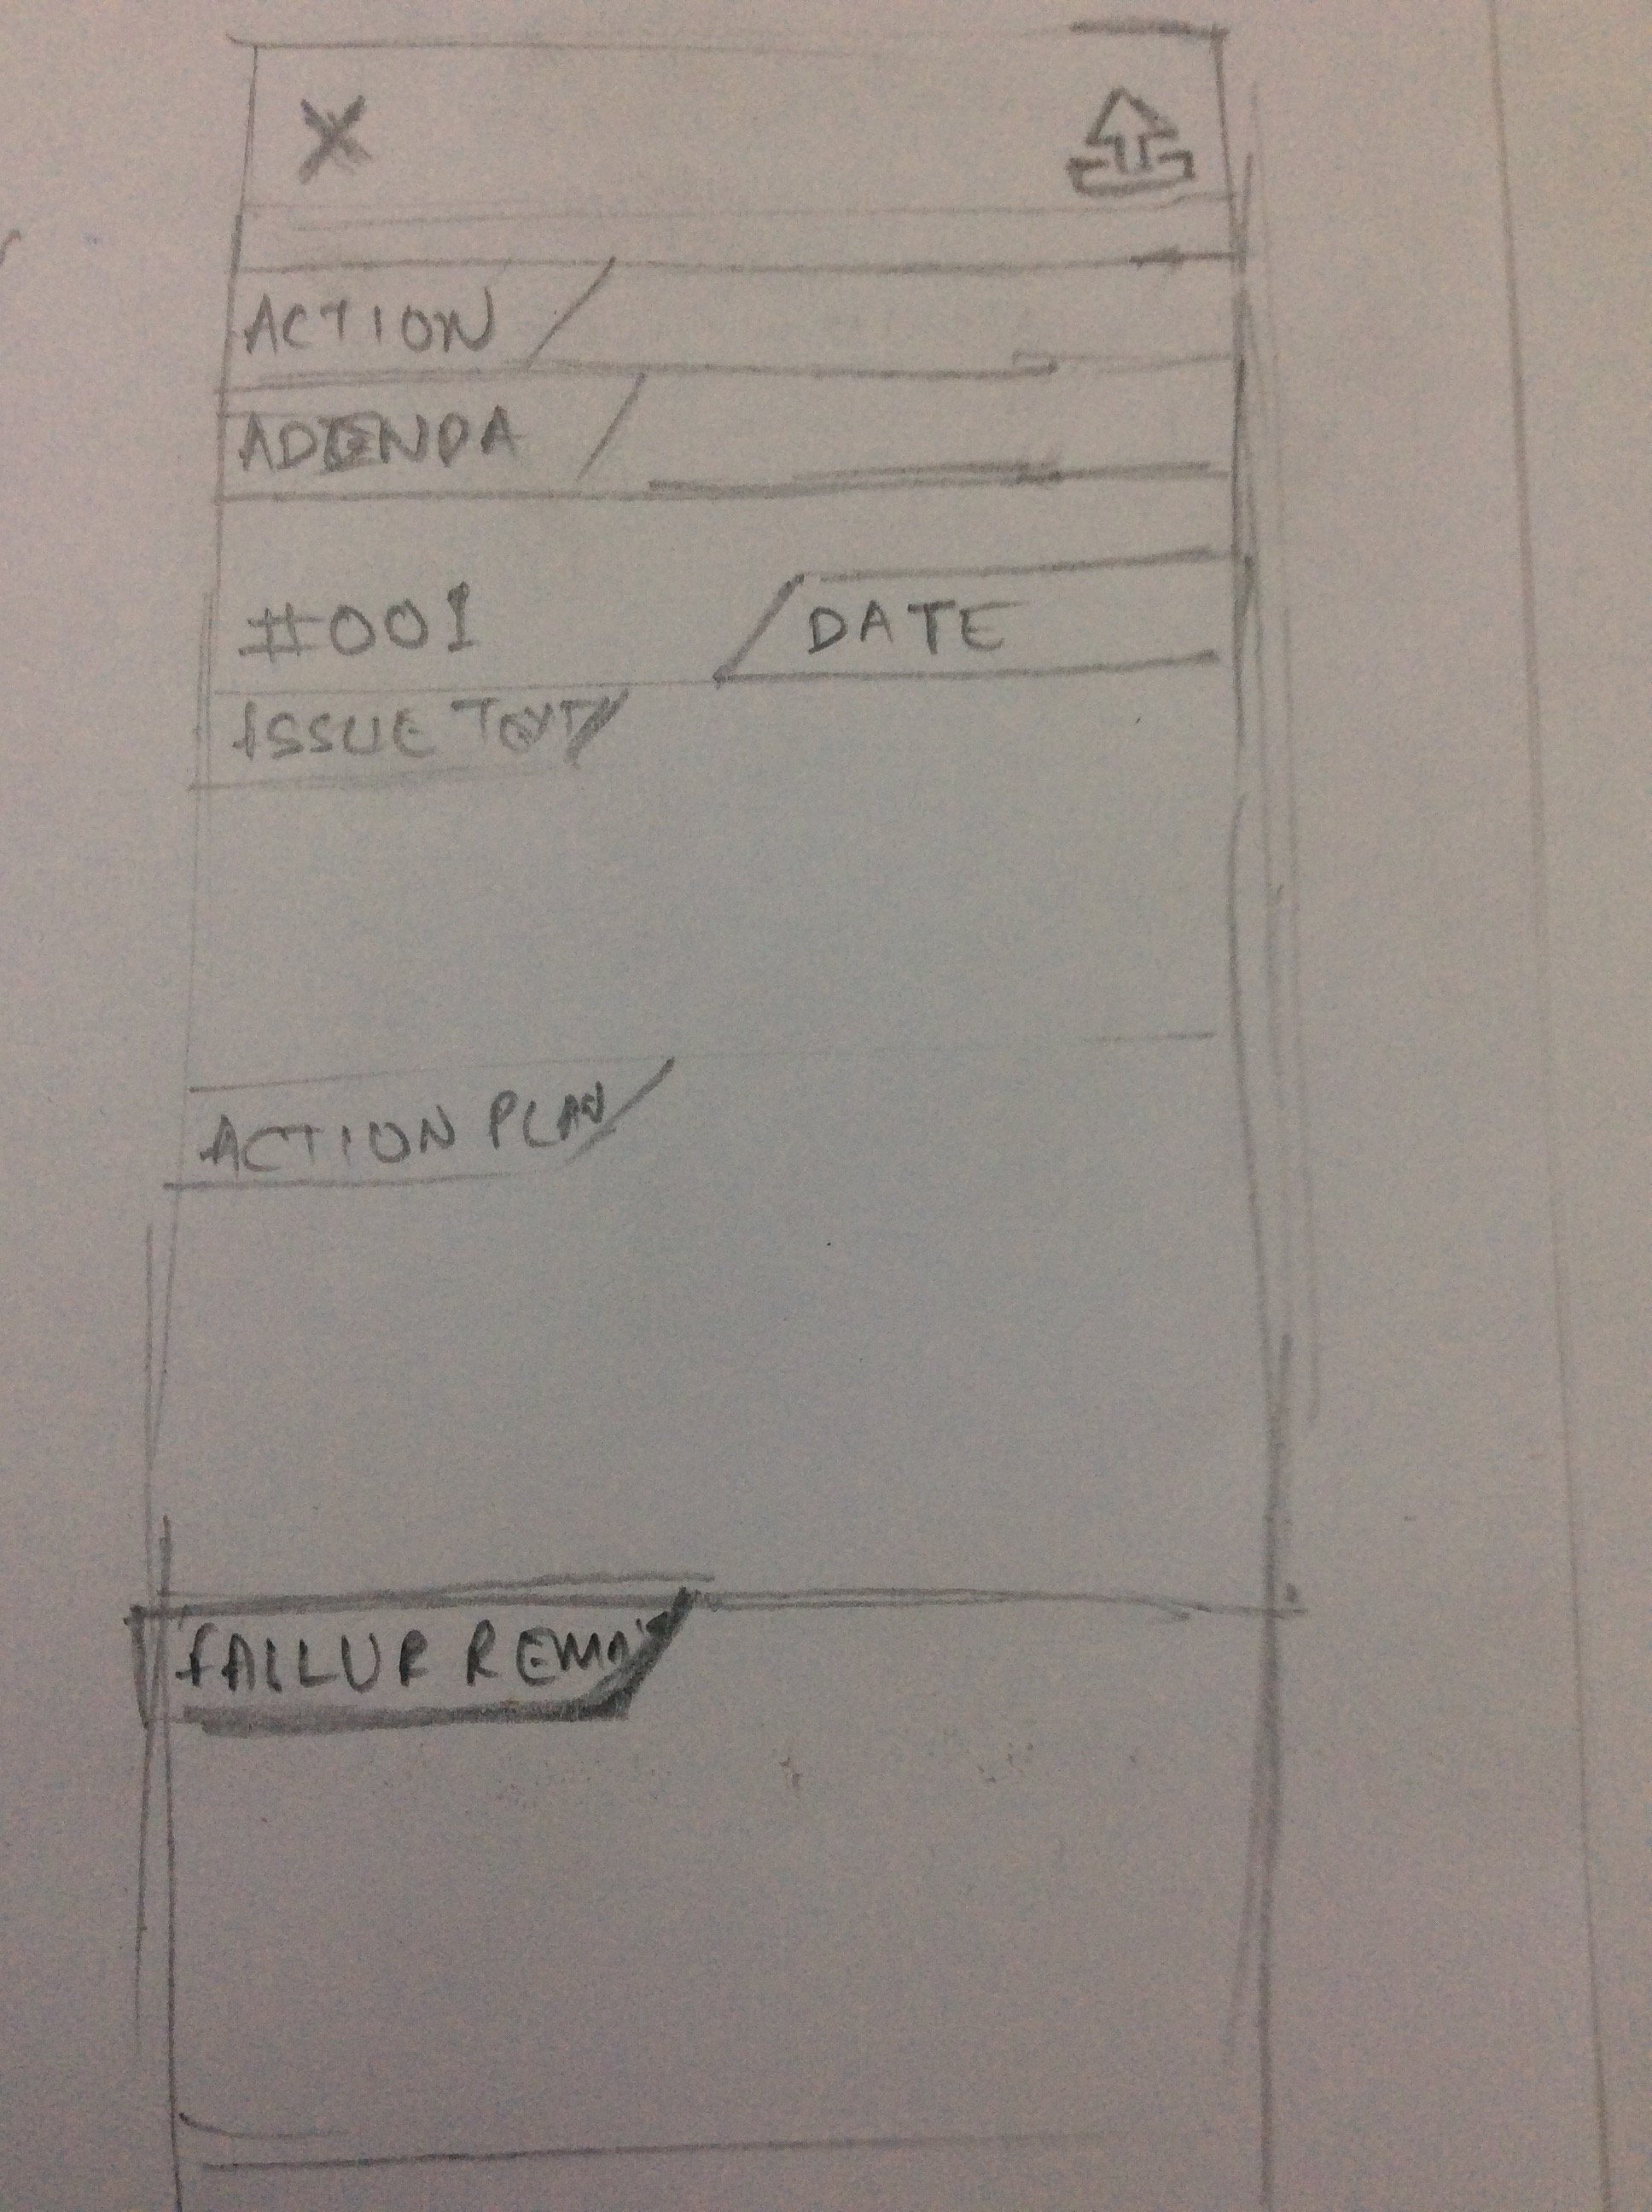 X
ACTION
#001
DATE
ISSUE TEXT
ACTION PLAN
FAILUR REMA